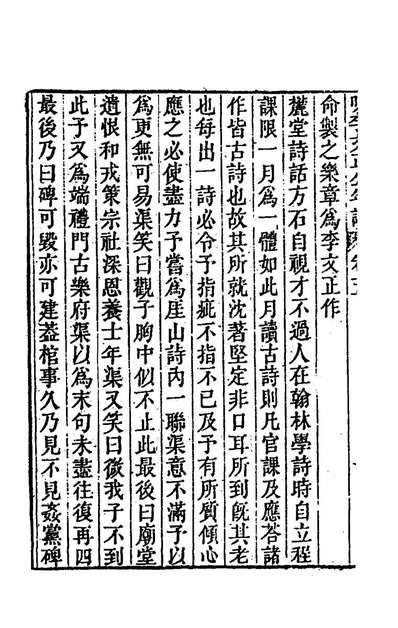 命製之樂章為李文正作
麓堂詩話方石自視才不過人在翰林學詩時自立程
課限一月為一體如此月讀古詩則凡官課及應荅諸
作皆古詩也故其所就沈著堅定非口耳所到旣其老
也每出一詩必令予指疵不指不已及予有所質傾心
應之必使盡力予嘗為厓山詩內一聯渠意不滿予以
為更無可易渠笑曰觀子胸中似不止此最後曰廟堂
遺恨和戎策宗社深恩養士年渠又笑曰微我子不到
此予又為端禮門古樂府渠以為末句未盡往復再四
最後乃曰碑可毀亦可建葢棺事久乃見不見姦黨碑